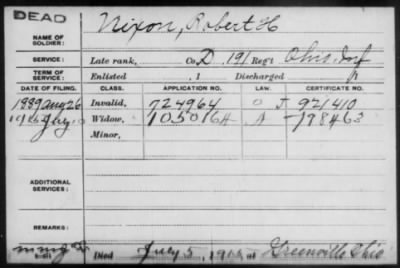 DEAD
NAME OF SOLDIER: Nixon, Robert H
SERVICE: Late rank, Co. D, 191 Reg't Ohio Inf
TERM OF SERVICE: Enlisted , 1 Discharged , 1
DATE OF FILING. CLASS. APPLICATION NO. LAW. CERTIFICATE NO.
1889 Aug 26 Invalid, 724964 J 921410
Widow, 1050164 A
Minor,
ADDITIONAL SERVICES:
REMARKS:
Died July 5, at Greenville Ohio